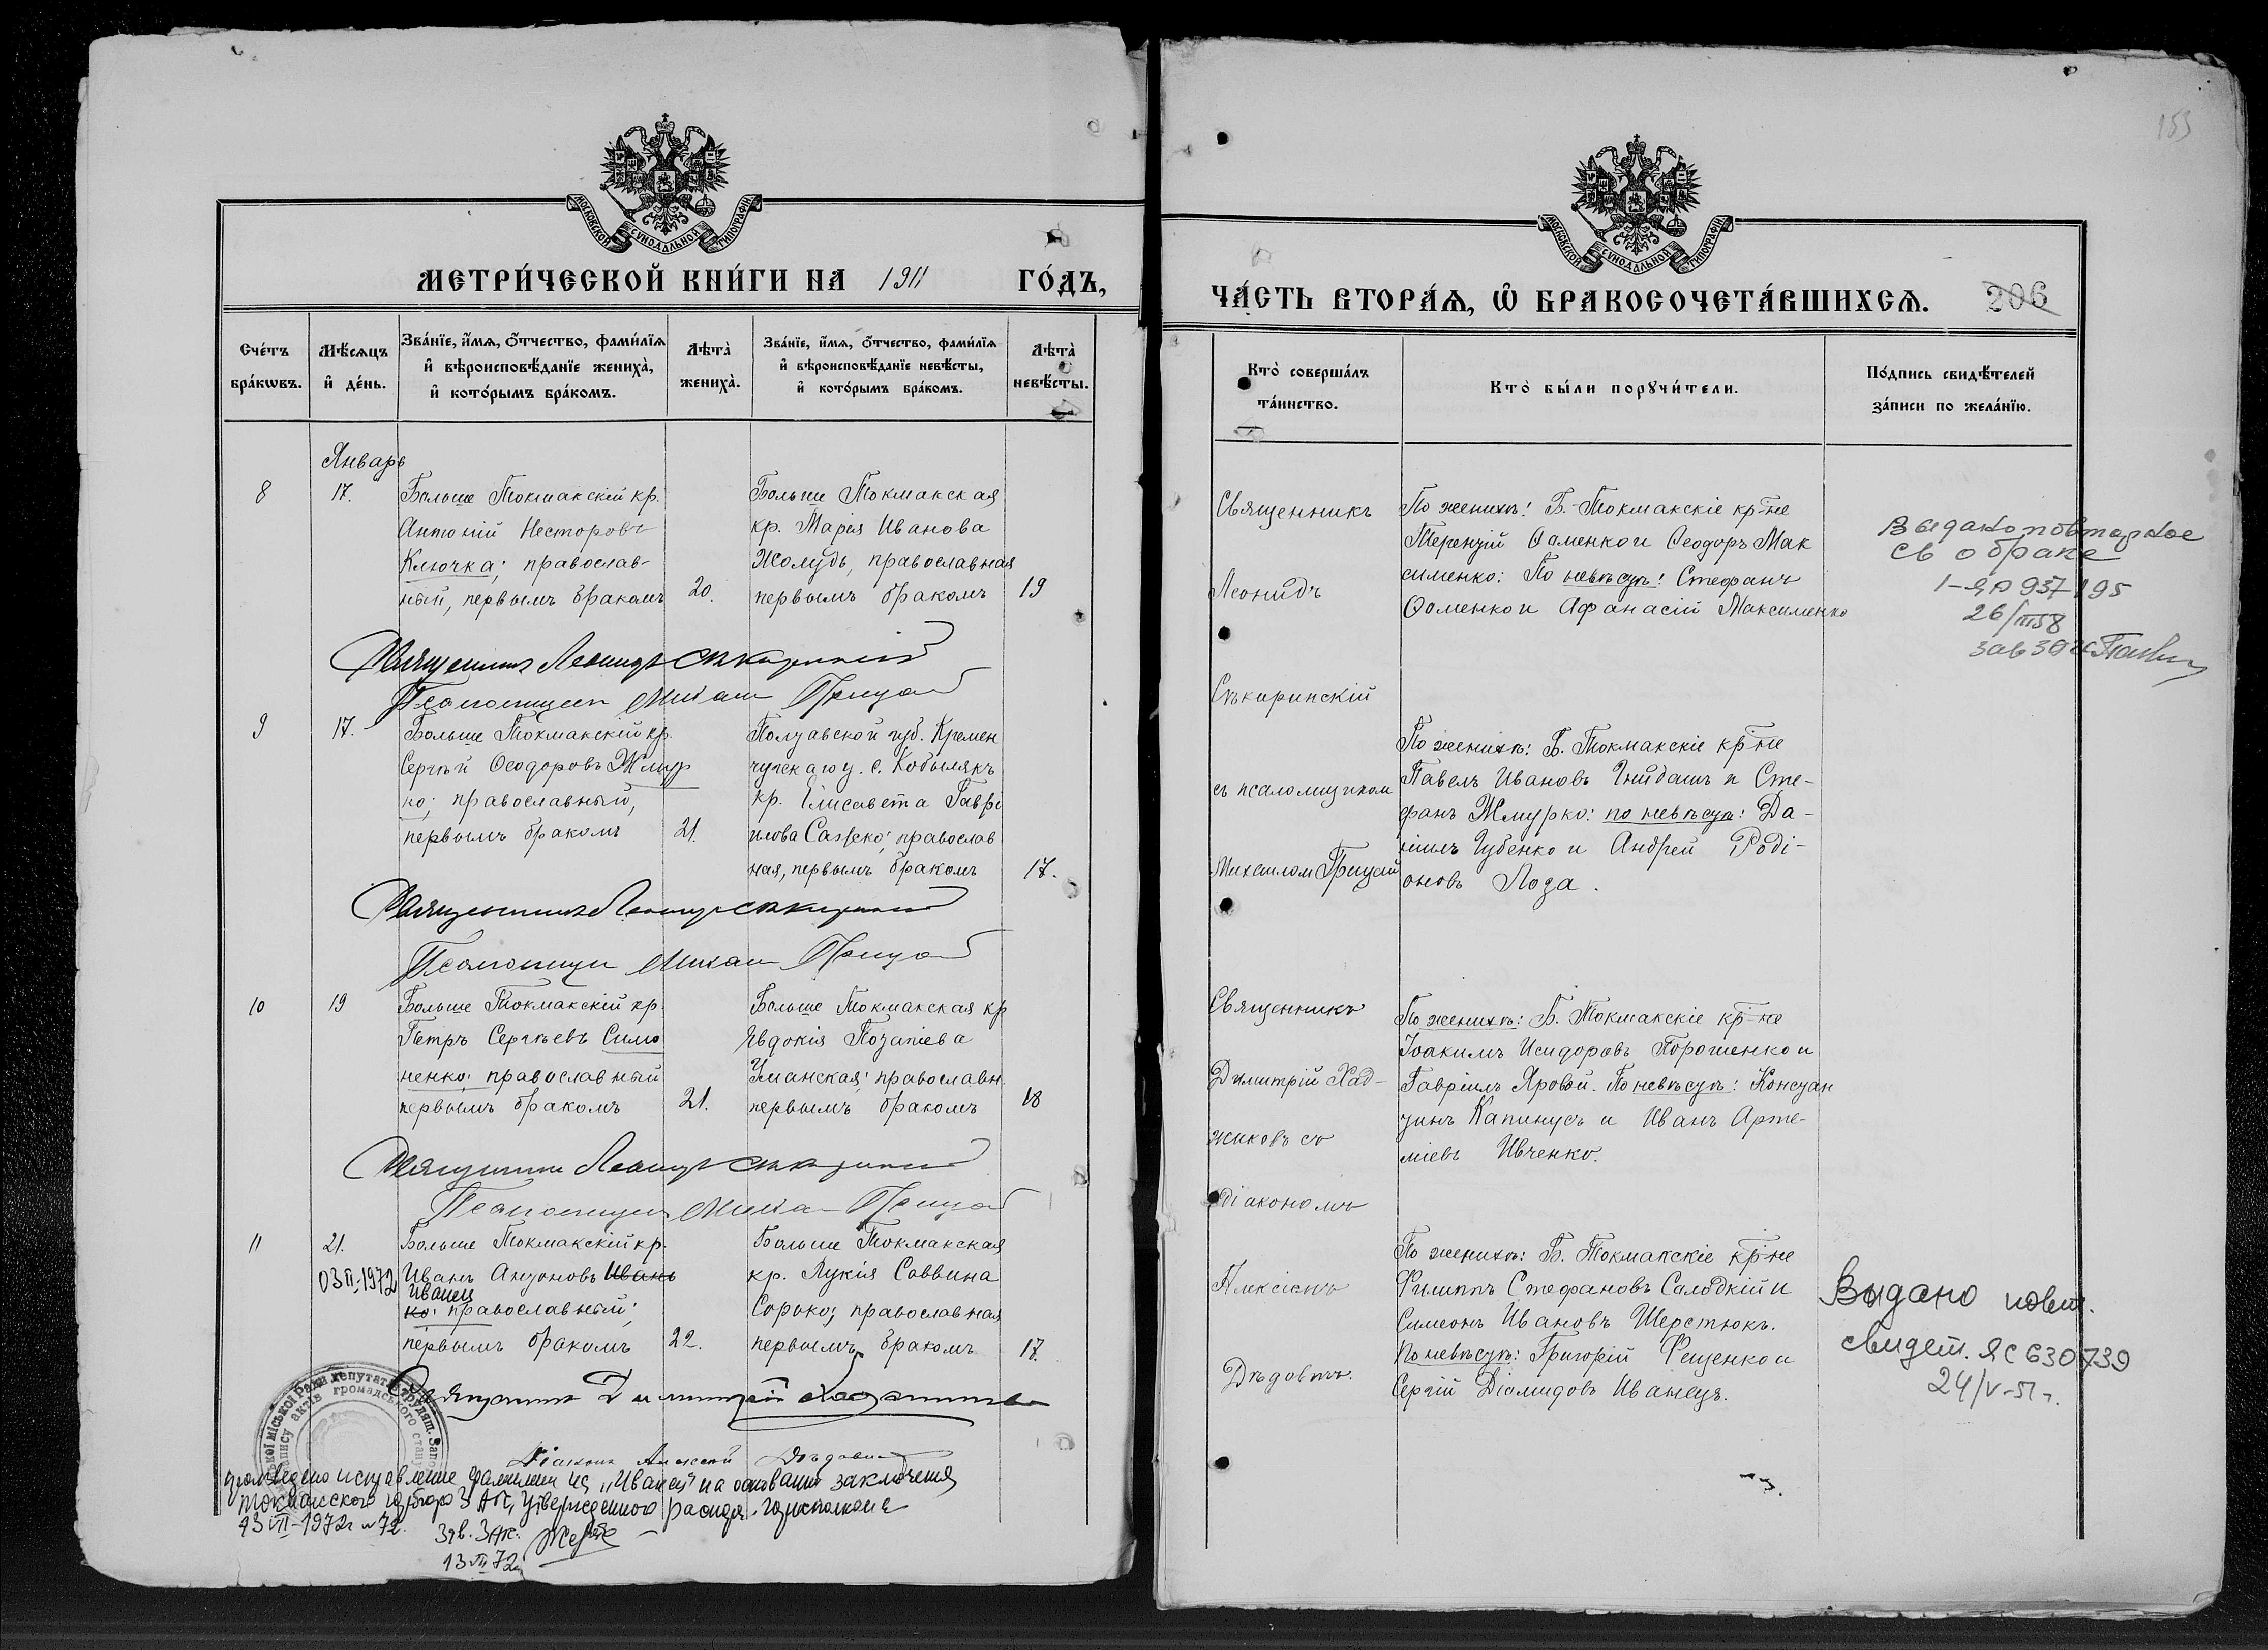 МОСКОВСКОЙ СѴНОДАЛЬНОЙ ТИПОГРАФІИ
МЕТРИ́ЧЕСКОЙ КНИ́ГИ НА 1911 ГО́ДЪ,
Сче́тъ бра́кѡвъ.
Мѣ́сѧцъ и҆ де́нь.
Зва́нїе, и҆́мѧ, ѻ҆́тчество, фами́лїѧ
и҆ вѣроисповѣ́данїе жениха̀,
и҆ кото́рымъ бра́комъ.
Лѣта̀ жениха̀.
Зва́нїе, и҆́мѧ, ѻ҆́тчество, фами́лїѧ
и҆ вѣроисповѣ́данїе невѣ́сты,
и҆ кото́рымъ бра́комъ.
Лѣта̀ невѣ́сты.
Январь
8
17.
Больше Токмакскій кр.
Антоній Несторовъ
Ключка; православ-
ный, первымъ бракомъ
20.
Больше Токмакская
кр. Марія Иванова
Жолудь, православная
первымъ бракомъ
19
Священникъ Леонидъ Сѣкиринскій
Псаломщикъ Михаил Грицай
9
17.
Больше Токмакскій кр.
Сергѣй Ѳеодоровъ Жмур
ко; православный,
первымъ бракомъ
21.
Полтавской губ. Кремен
чугскаго у. с. Кобылякъ
кр. Елисавета Гаврі
илова православ
ная, первымъ бракомъ
17.
Священникъ Леонидъ Сѣкиринскій
Псаломщикъ Михаил Грицай
10
19
Больше Токмакскій кр.
Петръ Сергѣевъ Симо
ненко; православный
первымъ бракомъ
21.
Больше Токмакская кр
Евдокія
Уманская; православн.
первымъ бракомъ
18
Священникъ Леонидъ Сѣкиринскій
Псаломщикъ Михаил Грицай
11
21.
03 II-1972
Больше Токмакскій кр.
Иванъ Антоновъ Ивань
Иванец
ко; православный;
первымъ бракомъ
22.
Больше Токмакская
кр. Лукія Саввина
Сороко; православная
первымъ бракомъ
17.
Священникъ Димитрій Хаджиновъ
Діаконъ Алексѣй Дѣдовъ
произведено исправление фамилии на „Иванец" на основании заключения
Токмакского горбюро ЗАГС, утвержденного горисполкома
13 VII-1972г №72.
Зав. ЗАГС
13 VII 72г
МОСКОВСКОЙ СѴНОДАЛЬНОЙ ТИПОГРАФІИ
153
ЧА́СТЬ ВТОРА́Ѧ, Ѡ҆ БРАКОСОЧЕТА́ВШИХСѦ.
206
Кто̀ соверша́лъ
та́инство.
Кто̀ бы́ли порꙋчи́тели.
По́дпись свидѣ́телей
за́писи по жела́нїю.
Священникъ
Леонидъ
Сѣкиринскій
съ псаломщиком
Михаилом Грицай
По женихѣ: Б.-Токмакскіе кр-не
Терентій Ѳоменко и Ѳеодоръ Мак
сименко: По невѣстѣ: Стефанъ
Ѳоменко и Афанасій Максименко
Выдано повторное
св о браке
I-ЯР 937195
26/III 58
зав ЗАГС
По женихѣ: Б. Токмакскіе кр-не
Павелъ Ивановъ Гнидашъ и Сте-
фанъ Жмурко: по невѣстѣ: Да-
ніилъ Губенко и Андрей Роді-
оновъ Лоза.
Священникъ
Димитрій Хад-
жиновъ съ
діакономъ
Алексіемъ
Дѣдовымъ.
По женихѣ: Б. Токмакскіе кр-не
Іоакимъ Исидоровъ Порошенко и
Гавріилъ Яровой. По невѣстѣ: Констан
тинъ Капинусъ и Иванъ Арте-
міевъ Ивченко.
По женихѣ: Б. Токмакскіе кр-не
Филиппъ Стефановъ Салодкій и
Симеонъ Ивановъ Шерстюкъ.
По невѣстѣ: Григорій Фещенко и
Сергій Діомидовъ Иванецъ.
Выдано повт.
свидет. ЯС 630739
24/V-51 г.